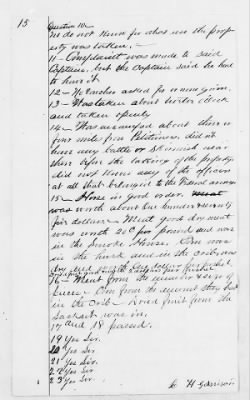 15
Question 10.
we do not know for what use the property was taken,
11 - Complaint was made to said
Captain, but the Captain said he had
to have it
12 - No voucher asked for or given.
13 - Was taken about twelve o'clock
and taken openly
14 - Was camped about three or
four miles from Petitioners, did not
have any battle or skirmish near
then before the taking of the property
did not know any of the officers
at all that belonged to the Federal army
15 - Horse in good order,
was worth about one hundred & seventy
five dollars - Meat good dry meat
was worth 20¢ per pound and was
in the Smoke House. Corn was
in the husk and in the crib was
dry and worth one dollar per bushel
16 - Meat from the smoke
house - Corn from the
in the crib - Dried fruit from the
sack it was in.
17 and 18 passed.
19 Yes Sir.
20 Yes Sir.
21 Yes Sir.
22 Yes Sir.
23 Yes Sir.
H Garrison